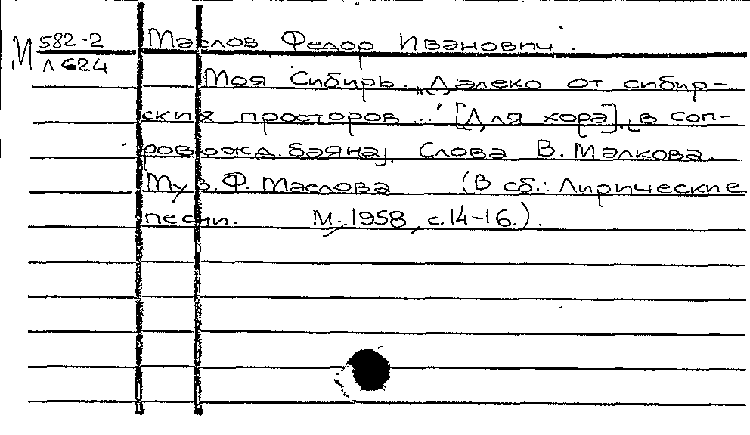 М 582-2
Л 624
Маслов Федор Иванович.
Моя Сибирь. „Далеко от сибир-
ских просторов..." [Для хора], в соп-
ровожд. баяна, Слова В. Малкова.
Муз. Ф. Маслова (В сб.: Лирические
песни. М., 1958, с. 14-16.).